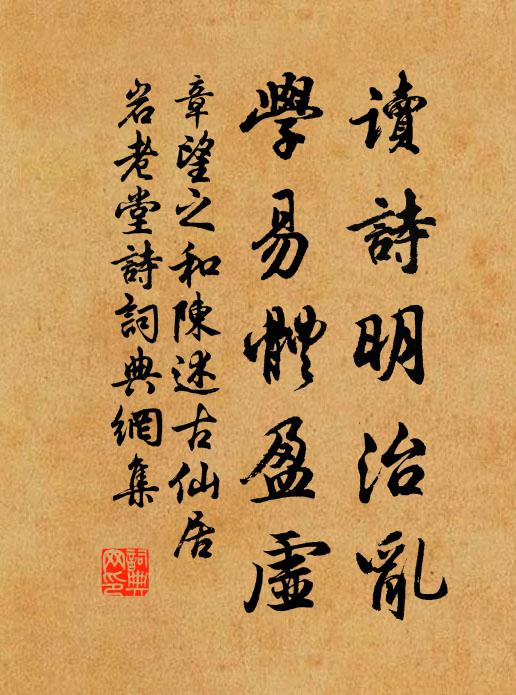 讀詩明治亂
學易體盈虛
章望之和陳述古仙居
岩老堂詩詞典網集
詞典網印